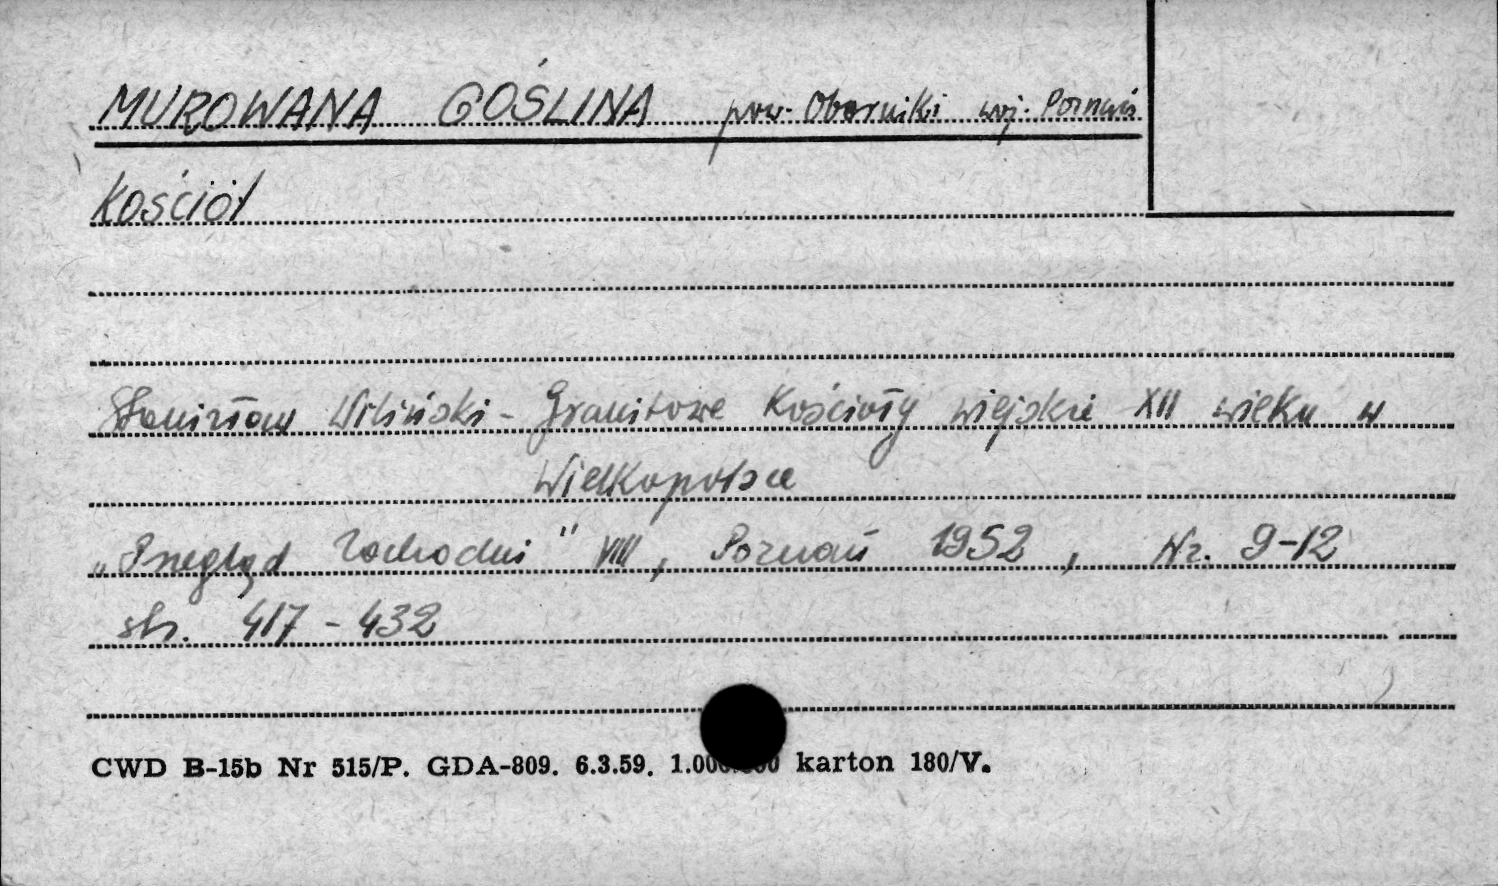 MUROWANA GOŚLINA pow. Oborniki woj. Poznań
Kościół
Stanisław Wiliński - Granitowe Kościoły wiejskie XII wieku w
Wielkopolsce
„Przegląd Zachodni" VIII, Poznań 1952, Nr. 9-12
str. 417 - 432
CWD B-15b Nr 515/P. GDA-809. 6.3.59. karton 180/V.